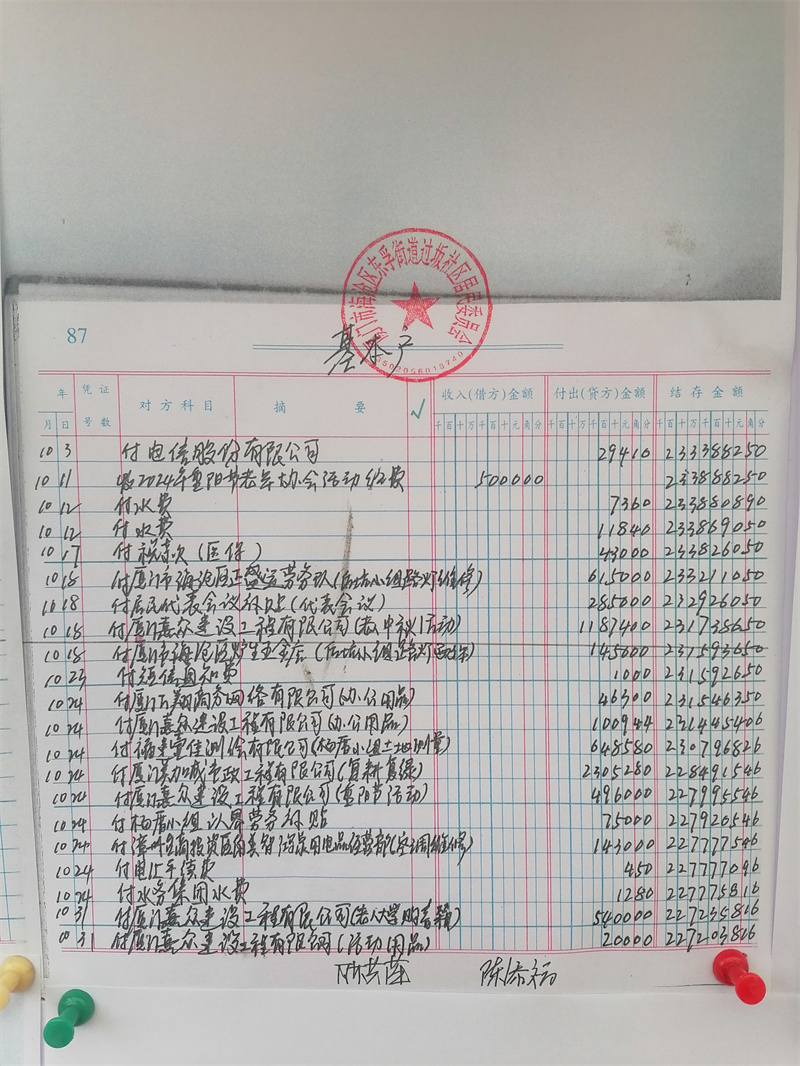 厦门市海沧区东孚街道过坂社区居民委员会
3502056016740
87
基本户
年 凭证 对方科目 摘要 √ 收入(借方)金额 付出(贷方)金额 结存金额
月 日 号数 千百十万千百十元角分 千百十万千百十元角分 千百十万千百十元角分
10 3 付电信股份有限公司 29410 233388250
10 11 收2024年重阳节老年协会活动经费 500000 233888250
10 12 付水费 7360 233880890
10 12 付水费 11840 233869050
10 17 付税款(医保) 43000 233826050
10 18 付厦门市海沧区正盛运劳务队(后坊小组路灯维修) 615000 233211050
10 18 付居民代表会议补贴(代表会议) 285000 232926050
10 18 付厦门嘉众建设工程有限公司(中秋活动) 1187400 231738650
10 18 付厦门市海沧区炉生五金店 145000 231593650
10 23 付短信通知费 1000 231592650
10 24 付厦门翔商务网络有限公司(办公用品) 46300 231546350
10 24 付厦门嘉众建设工程有限公司(办公用品) 100944 231445406
10 24 付福建星佳测绘有限公司(柏厝小组土地测量) 648580 230796826
10 24 付厦门加城市政工程有限公司(复耕复绿) 2305280 228491546
10 24 付厦门嘉众建设工程有限公司(重阳节活动) 496000 227995546
10 24 付柏厝小组认界劳务补贴 75000 227920546
10 24 付漳州台商投资区角美家用电器经营部(空调维修) 143000 227777546
10 24 付电汇手续费 450 227777096
10 24 付水务集团水费 1280 227775816
10 31 付厦门嘉众建设工程有限公司(老人大学购书籍) 540000 227235816
10 31 付厦门嘉众建设工程有限公司(活动用品) 20000 227203816
陈添福